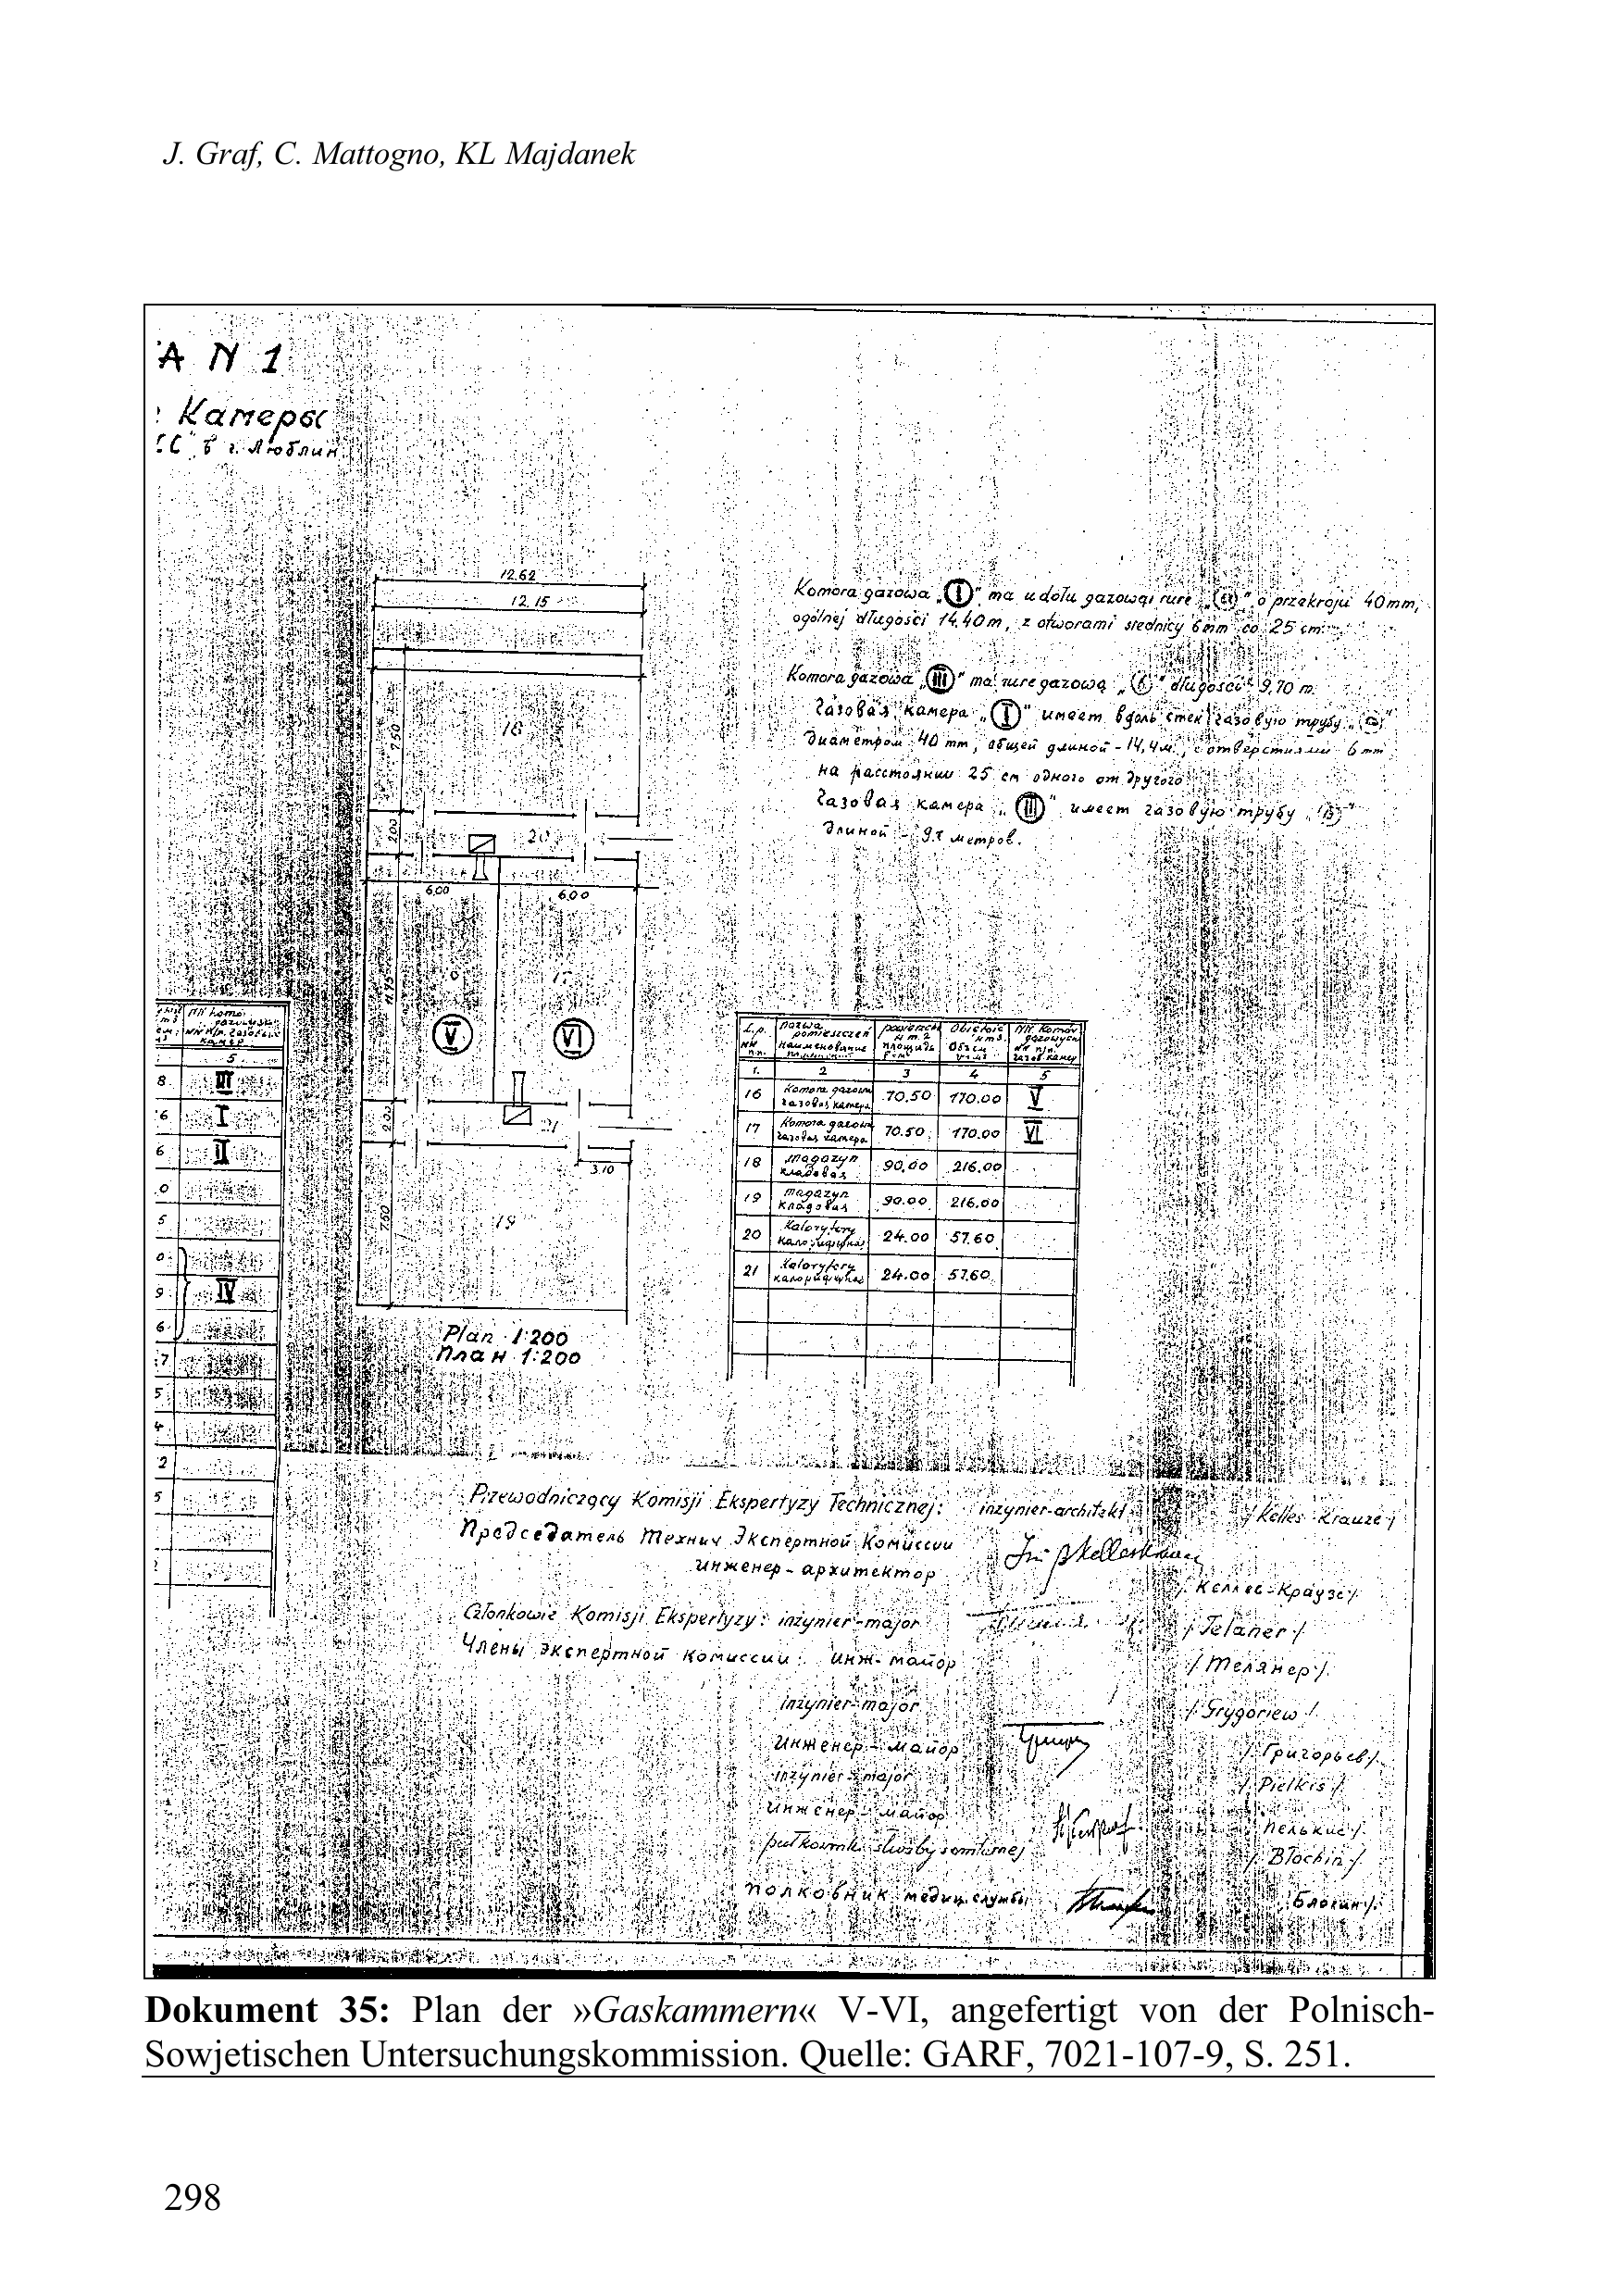 J. Graf, C. Mattogno, KL Majdanek
A N 1
Камеры
в г. Люблин
12.62
12.15
Komora gazowa „I” ma u dołu gazową rurę o przekroju 40mm,
ogólnej długości 14.40m, z otworami średnicy 6mm co 25 cm.
Komora gazowa „III” ma rurę gazową długości 9,70 m.
Газовая камера „I” имеет вдоль стен газовую трубу
диаметром 40 mm, общей длиной - 14,4м, с отверстиями 6 mm
на расстоянии 25 см одного от другого
Газовая камера „III” имеет газовую трубу
длиной - 9.7 метров.
18
7.50
20
6.00
6.00
17
V
VI
21
3.10
19
Plan 1:200
План 1:200
5
8 III
6 I
6 II
0
5
0
9 IV
6
7
5
4
2
5
L.p. nazwa pomieszczeń
наименование площадь
1. 2 3 4 5
16 Komora gazowa газовая камера 70.50 170.00 V
17 Komora gazowa газовая камера 70.50 170.00 VI
18 magazyn кладовая 90.00 216.00
19 magazyn кладовая 90.00 216.00
20 Kaloryfery 24.00 57.60
21 Kaloryfery 24.00 57.60
Przewodniczący Komisji Ekspertyzy Technicznej: inżynier-architekt /Kelles-Krauze/
Председатель Технич Экспертной Комиссии
инженер-архитектор /Келлес-Краузе/
Członkowie Komisji Ekspertyzy: inżynier-major /Telaner/
Члены экспертной комиссии: инж-майор /Телянер/
inżynier-major /Grygoriew/
инженер-майор /Григорьев/
inżynier-major /Pielkis/
инженер-майор /Пелькис/
pułkownik służby /Błochin/
полковник медиц. службы /Блохин/
Dokument 35: Plan der »Gaskammern« V-VI, angefertigt von der Polnisch-
Sowjetischen Untersuchungskommission. Quelle: GARF, 7021-107-9, S. 251.
298